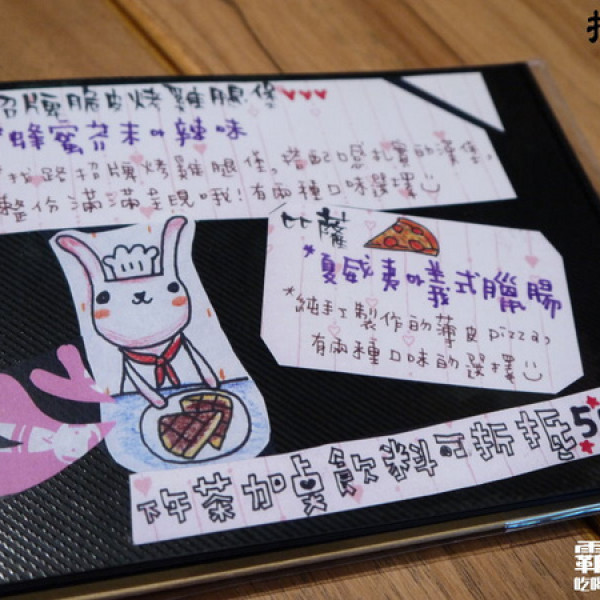 招牌脆皮烤雞腿堡
*蜂蜜芥末、辣味
*找路招牌烤雞腿堡,搭配口感扎實的漢堡,
整份滿滿呈現哦!有兩種口味選擇
比薩
*夏威夷、義式臘腸
*純手工製作的薄皮pizza,
有兩種口味的選擇
下午茶加點飲料可折抵5
霸
吃喝